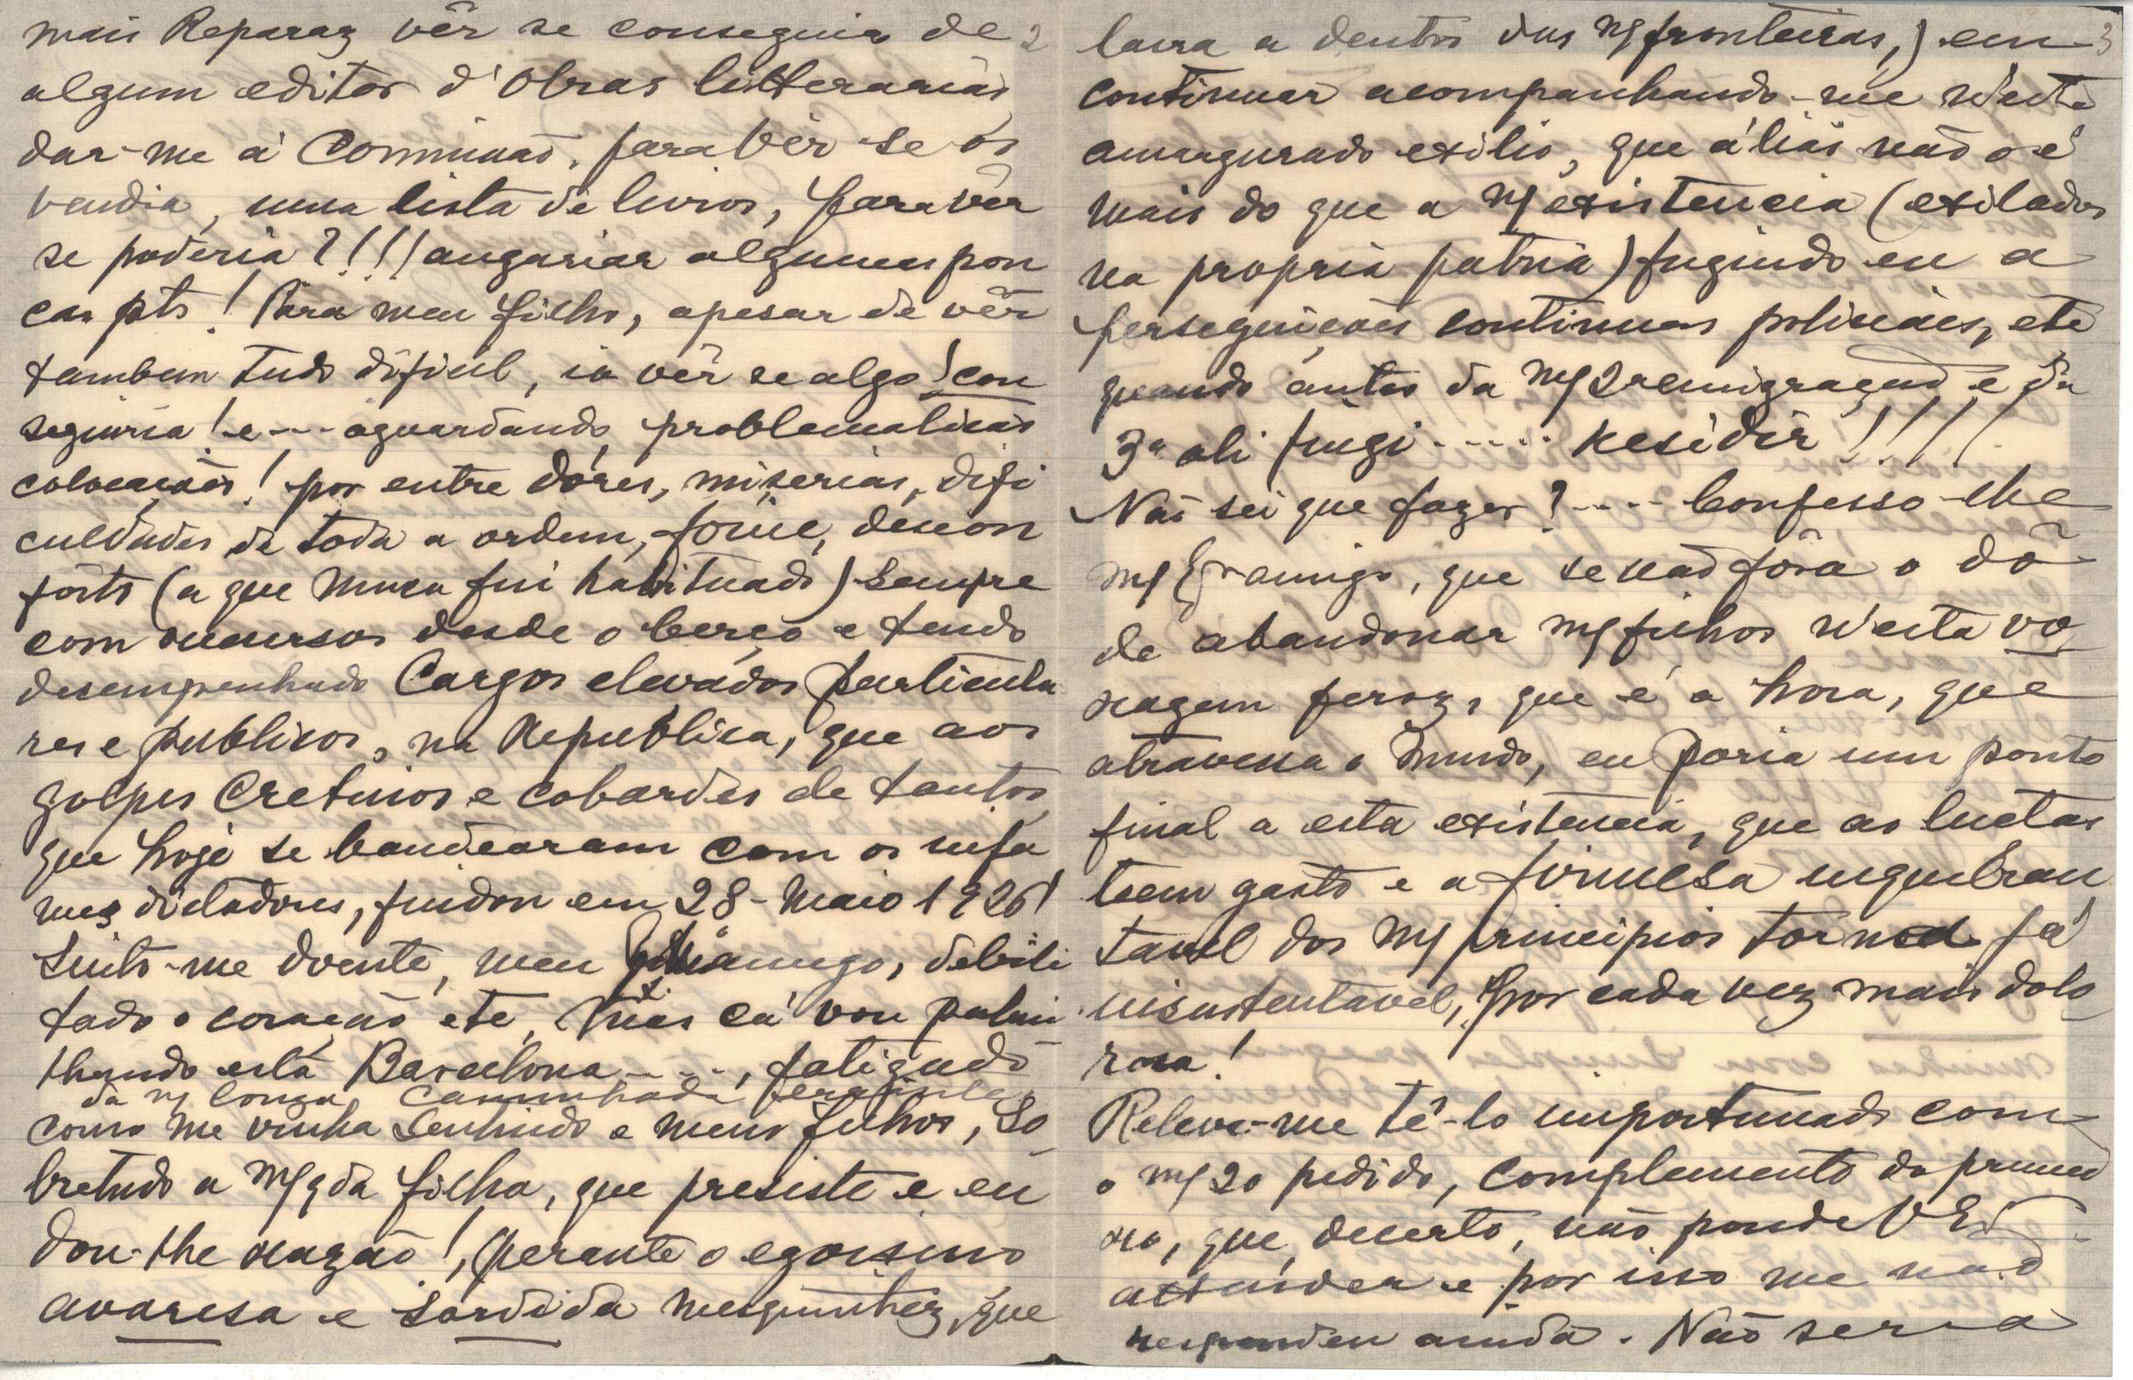 2
mais Reparaz vêr se conseguia de
algum editor d'Obras litterarias
dar-me á Commissão, para vêr se os
vendia, uma lista de livros, para vêr
se poderia?!!! angariar algumas pou
cas pts! Para meu filho, apesar de vêr
tambem tudo dificil, ia vêr se algo! con
seguiria! e --- aguardando problematicas
colocações! por entre dôres, miserias, difi
culdades de toda a ordem, fome, descon
forto (a que nunca fui habituado) sempre
com recursos desde o berço e tendo
desempenhado Cargos elevados particula
res e publicos, na Republica, que aos
golpes cretinos e cobardes de tantos
que hoje se bandearam com os infa
mes dictadores, findou em 28-Maio 1926!
Sinto-me doente, meu amigo, debili
tado o coração etc, mas cá vou palmi
lhando esta Barcelona ----, fatigado
da mª longa caminhada
como me vinha sentindo e meus filhos, so
bretudo a mª qda filha, que presiste e eu
dou-lhe razão!, perante o egoismo
avaresa e sordida mesquinhez, que
3
lavra a dentro das nª fronteiras,) em
continuar acompanhando-me n'este
amargurado exilio, que áliás não o é
mais do que a nª existencia (exilados
na propria patria) fugindo eu a
perseguições continuas policiaes, etc
quando antes da mª 2ª emigração e da
3ª ali fingi ----- residir!!!!
Não sei que fazer? ---- Confesso-lhe
mª amigo, que se não fôra o dó
de abandonar mª filhos n'esta vo
ragem feroz, que é a hora, que
atravessa o Mundo, eu poria um ponto
final a esta existencia, que as luctas
teem gasto e a firmesa inquebran
tavel dos mª principios torna já
insustentavel, por cada vez mais dolo
rosa!
Releve-me tê-lo importunado com
o mª 2o pedido, complemento do primei
ro, que, decerto, não poude V E
attender e por isso me não
respondeu ainda. Não seria